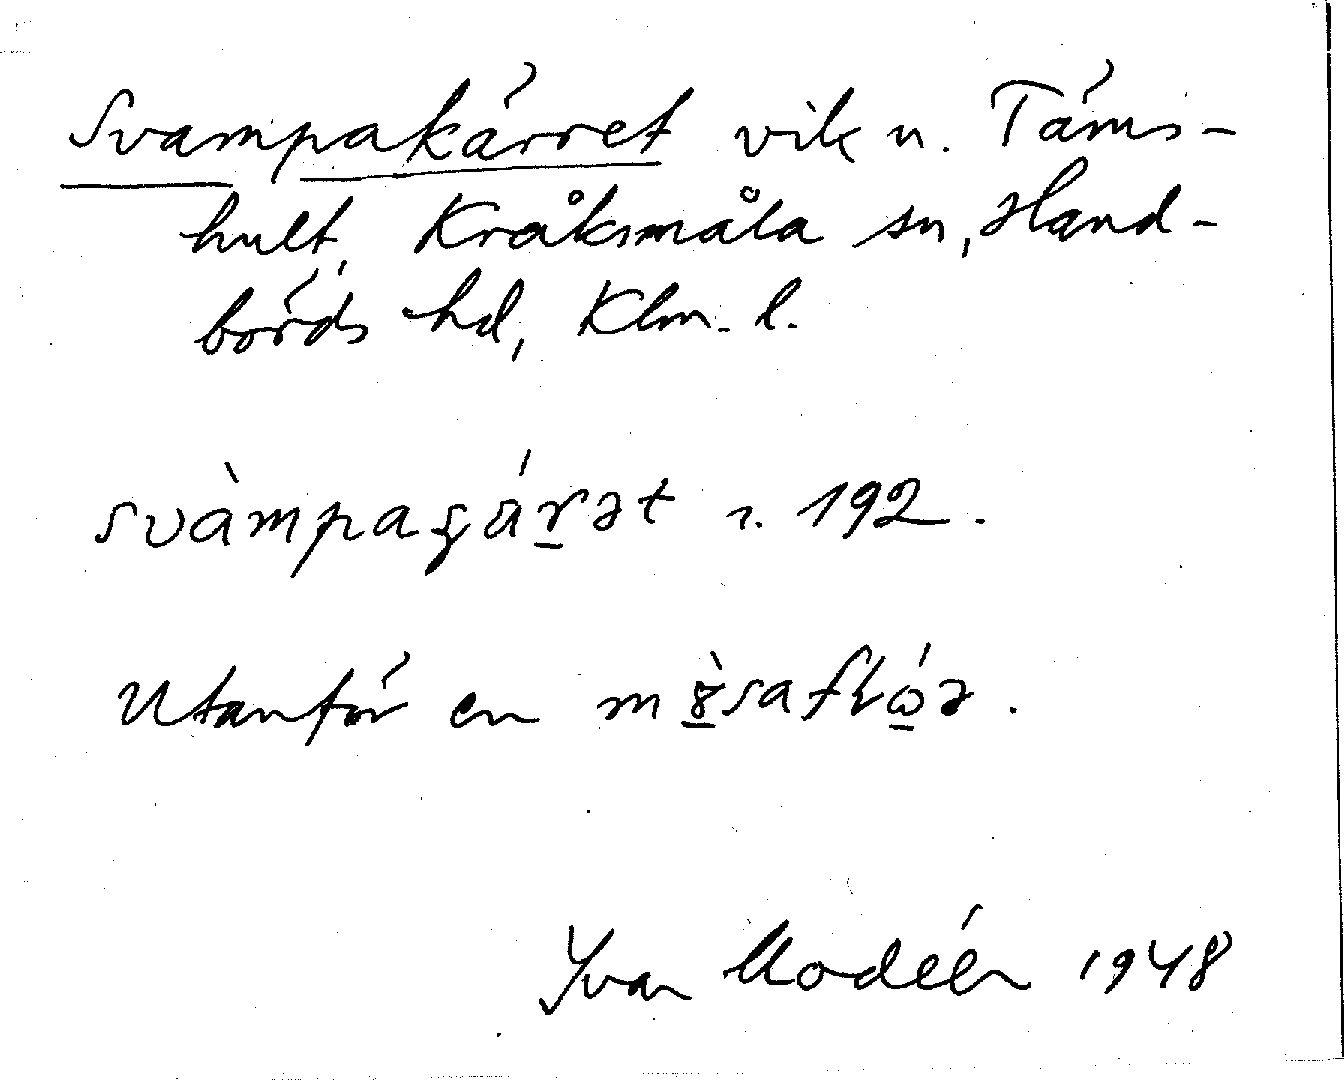 Svampakärret vik u. Täms-
hult, Kråksmåla sn, Hand-
börds hd, Klm. l.
svàmpagá̈r̲ət r. 192.
Utanför en
Yvar Modéer 1948